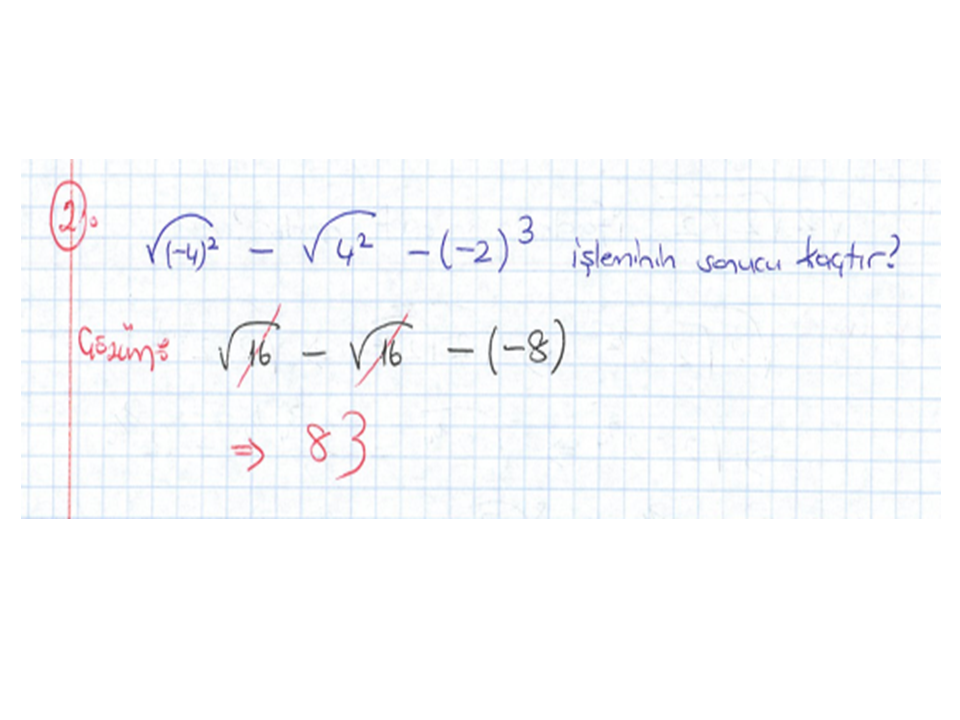 2). √(-4)² - √4² - (-2)³ işleminin sonucu kaçtır?
Çözüm: √16 - √16 - (-8)
⇒ 8}